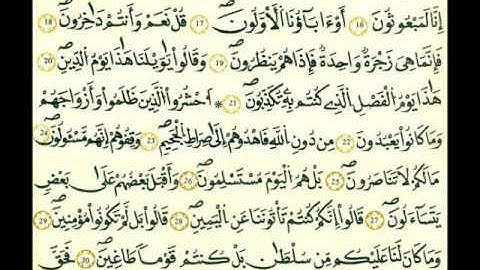 إِنَّا لَمَبْعُوثُونَ ١٦ أَوَءَابَآؤُنَا ٱلْأَوَّلُونَ ١٧ قُلْ نَعَمْ وَأَنتُمْ دَٰخِرُونَ ١٨
فَإِنَّمَا هِىَ زَجْرَةٌ وَٰحِدَةٌ فَإِذَا هُمْ يَنظُرُونَ ١٩ وَقَالُوا۟ يَٰوَيْلَنَا هَٰذَا يَوْمُ ٱلدِّينِ ٢٠
هَٰذَا يَوْمُ ٱلْفَصْلِ ٱلَّذِى كُنتُم بِهِۦ تُكَذِّبُونَ ٢١ * ٱحْشُرُوا۟ ٱلَّذِينَ ظَلَمُوا۟ وَأَزْوَٰجَهُمْ
وَمَا كَانُوا۟ يَعْبُدُونَ ٢٢ مِن دُونِ ٱللَّهِ فَٱهْدُوهُمْ إِلَىٰ صِرَٰطِ ٱلْجَحِيمِ ٢٣ وَقِفُوهُمْ إِنَّهُم مَّسْـُٔولُونَ ٢٤
مَا لَكُمْ لَا تَنَاصَرُونَ ٢٥ بَلْ هُمُ ٱلْيَوْمَ مُسْتَسْلِمُونَ ٢٦ وَأَقْبَلَ بَعْضُهُمْ عَلَىٰ بَعْضٍ
يَتَسَآءَلُونَ ٢٧ قَالُوٓا۟ إِنَّكُمْ كُنتُمْ تَأْتُونَنَا عَنِ ٱلْيَمِينِ ٢٨ قَالُوا۟ بَل لَّمْ تَكُونُوا۟ مُؤْمِنِينَ ٢٩
وَمَا كَانَ لَنَا عَلَيْكُم مِّن سُلْطَٰنٍ بَلْ كُنتُمْ قَوْمًا طَٰغِينَ ٣٠ فَحَقَّ